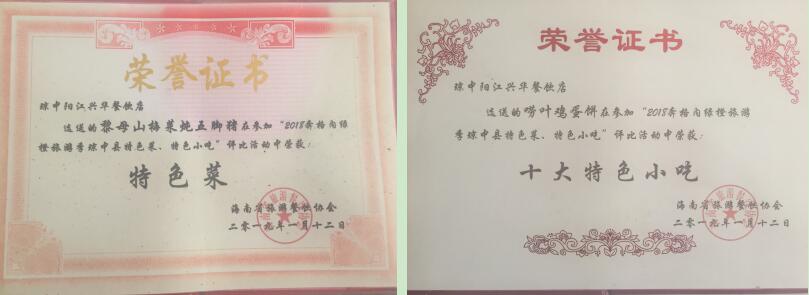 荣誉证书
琼中阳江兴华餐饮店
选送的黎母山梅菜炖五脚猪在参加“2018奔格内绿
橙旅游季琼中县特色菜、特色小吃”评比活动中荣获：
特色菜
海南省旅游餐饮协会
二零一九年一月十二日
荣誉证书
琼中阳江兴华餐饮店
选送的唠叶鸡蛋饼在参加“2018奔格内绿橙旅游
季琼中县特色菜、特色小吃”评比活动中荣获：
十大特色小吃
海南省旅游餐饮协会
二零一九年一月十二日